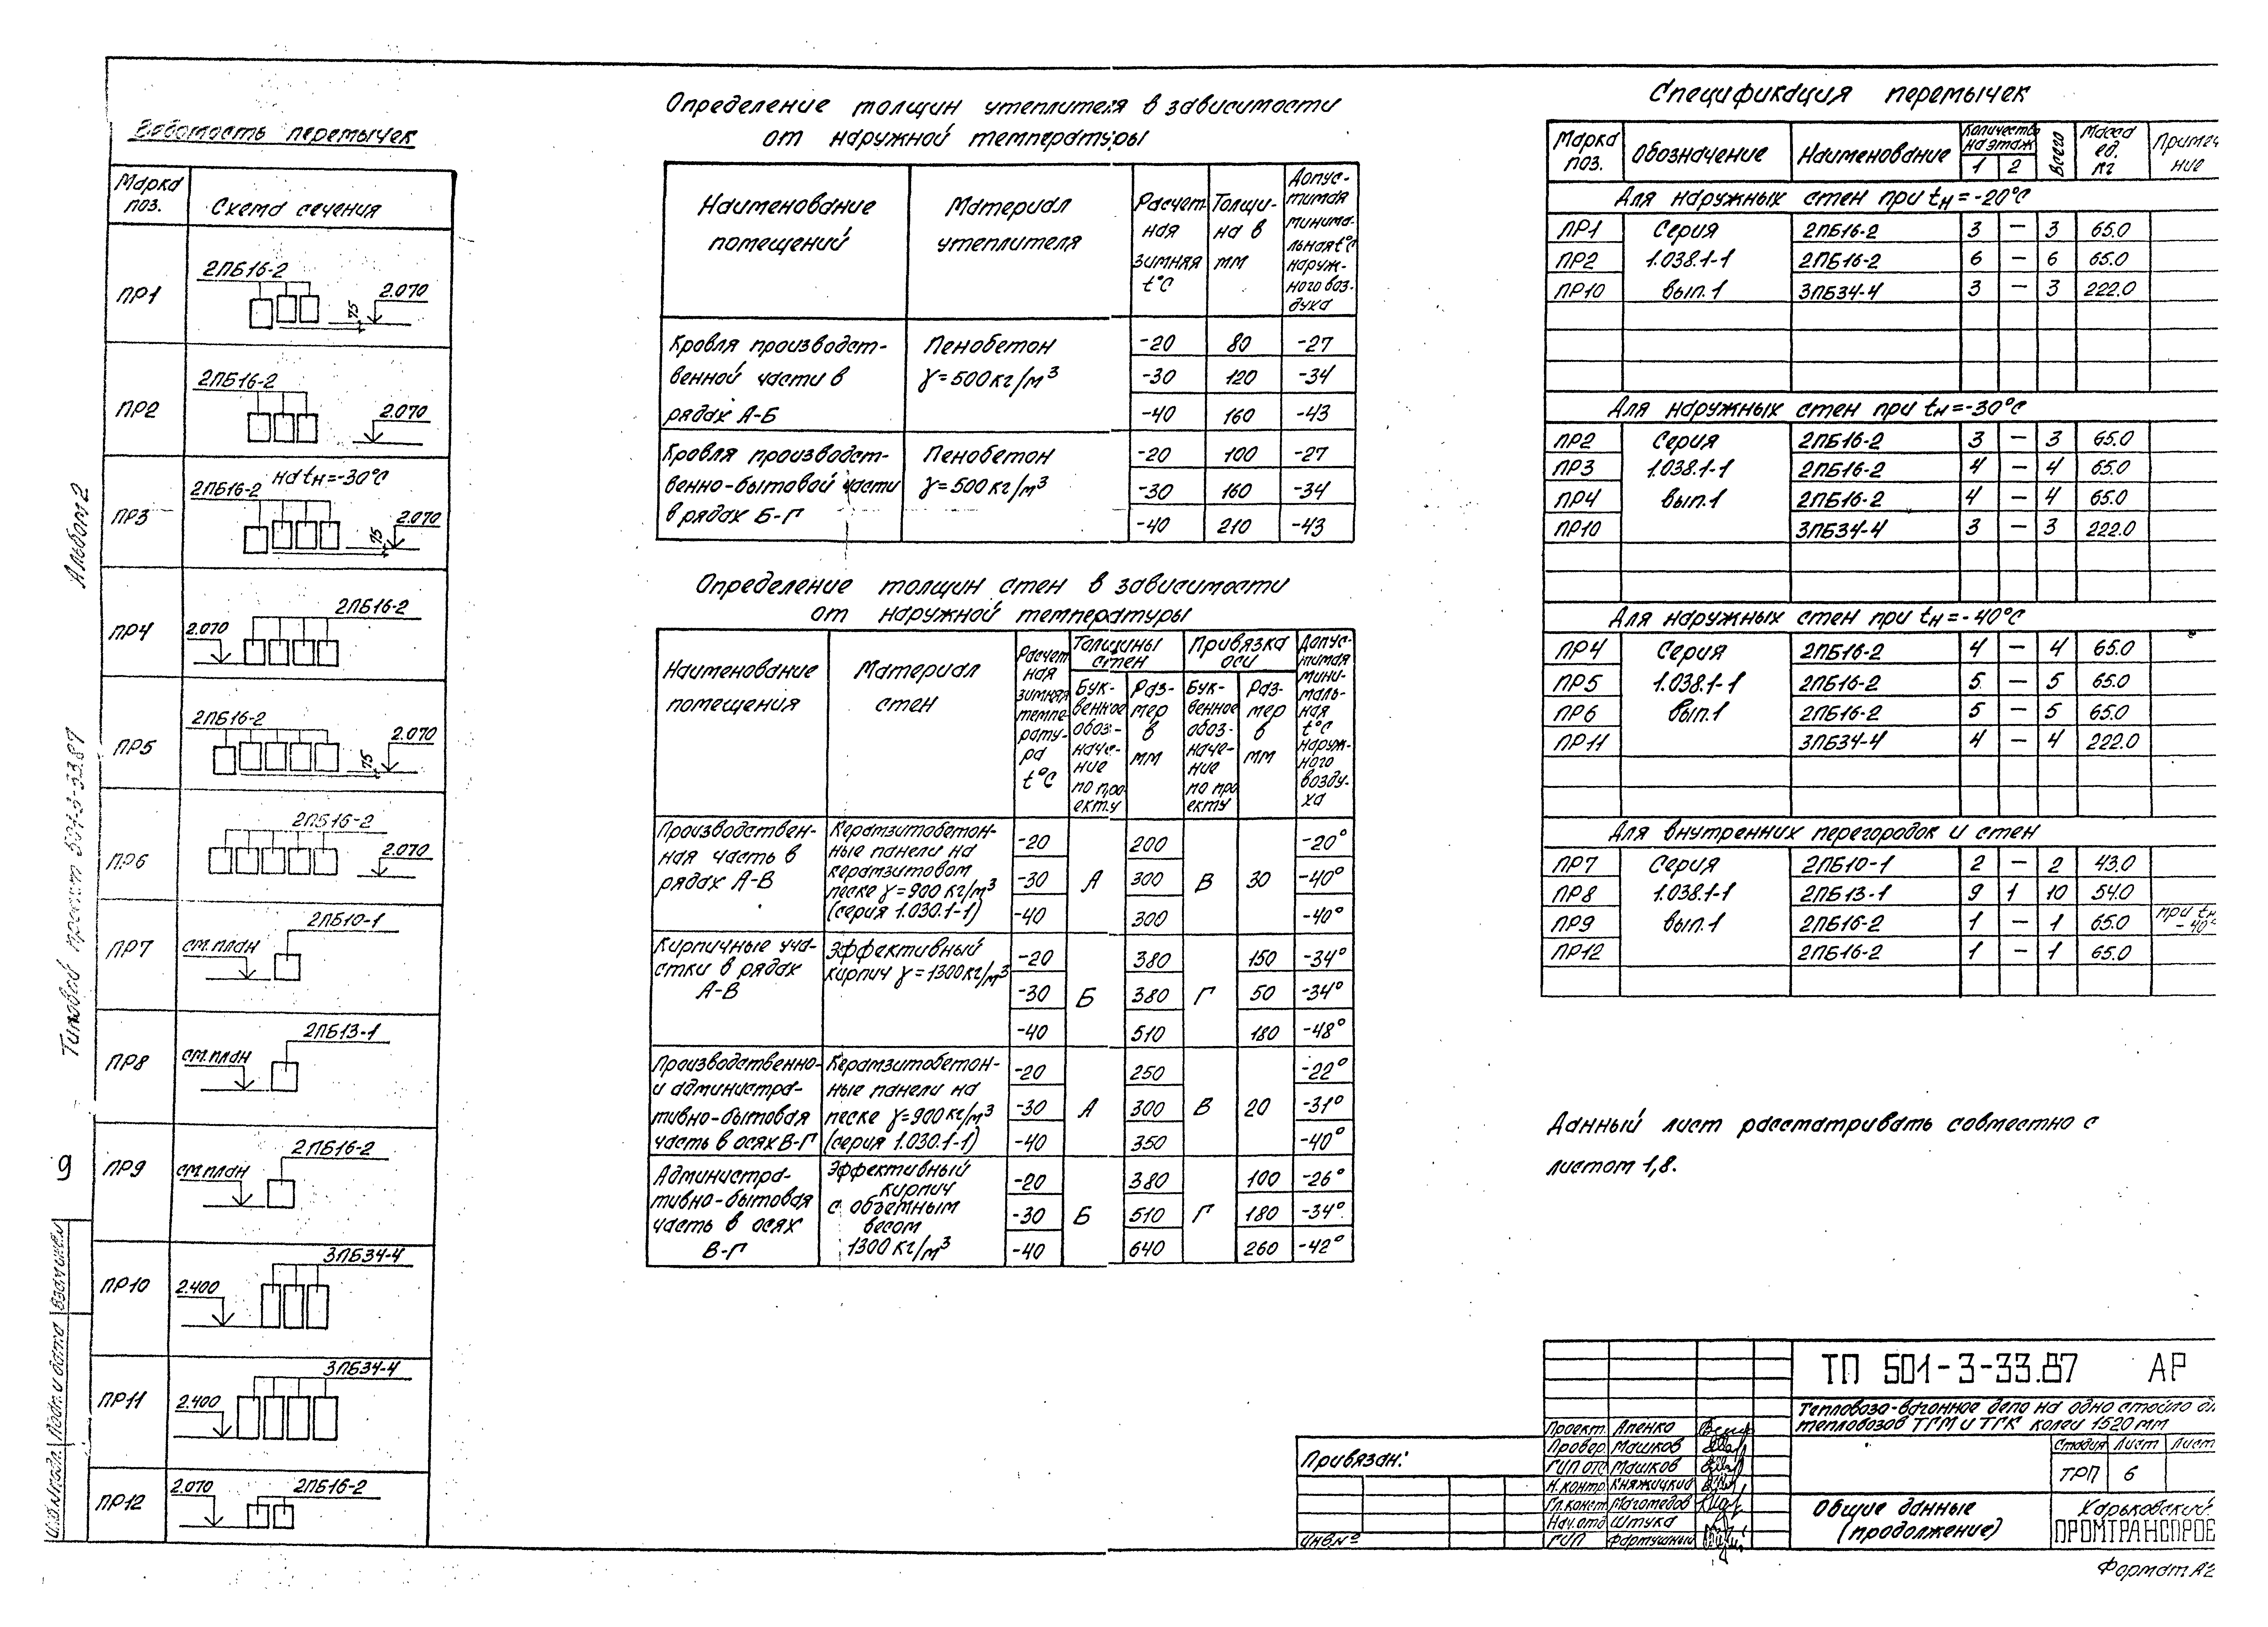 Ведомость перемычек
Марка поз.
Схема сечения
ПР1
2ПБ16-2
2.070
75
ПР2
2ПБ16-2
2.070
ПР3
2ПБ16-2
на tн=-30°С
2.070
75
ПР4
2ПБ16-2
2.070
ПР5
2ПБ16-2
2.070
75
ПР6
2ПБ16-2
2.070
ПР7
2ПБ10-1
см.план
ПР8
2ПБ13-1
см.план
ПР9
2ПБ16-2
см.план
ПР10
3ПБ34-4
2.400
ПР11
3ПБ34-4
2.400
ПР12
2.070
2ПБ16-2
Альбом 2
Типовой проект 501-3-33.87
9
Инв.№подл.
Подп. и дата
Взам.инв.№
Определение толщин утеплителя в зависимости
от наружной температуры
Наименование помещений
Материал утеплителя
Расчетная зимняя t°С
Толщина в мм
Допустимая минимальная t°С наружного воздуха
Кровля производст-
венной части в
рядах А-Б
Пенобетон
γ=500кг/м³
-20 80 -27
-30 120 -34
-40 160 -43
Кровля производст-
венно-бытовой части
в рядах Б-Г
Пенобетон
γ=500кг/м³
-20 100 -27
-30 160 -34
-40 210 -43
Определение толщин стен в зависимости
от наружной температуры
Наименование помещения
Материал стен
Расчетная зимняя температура t°С
Толщины стен
Буквенное обозначение по проекту
Размер в мм
Привязка оси
Буквенное обозначение по проекту
Размер в мм
Допустимая минимальная t°С наружного воздуха
Производствен-
ная часть в
рядах А-В
Керамзитобетон-
ные панели на
керамзитовом
песке γ=900 кг/м³
(серия 1.030.1-1)
-20 200 -20°
-30 А 300 В 30 -40°
-40 300 -40°
Кирпичные уча-
стки в рядах
А-В
Эффективный
кирпич γ=1300кг/м³
-20 380 150 -34°
-30 Б 380 Г 50 -34°
-40 510 180 -48°
Производственно-
и администра-
тивно-бытовая
часть в осях В-Г
Керамзитобетон-
ные панели на
песке γ=900 кг/м³
(серия 1.030.1-1)
-20 250 -22°
-30 А 300 В 20 -31°
-40 350 -40°
Администра-
тивно-бытовая
часть в осях
В-Г
Эффективный
кирпич
с объемным
весом
1300 кг/м³
-20 380 100 -26°
-30 Б 510 Г 180 -34°
-40 640 260 -42°
Спецификация перемычек
Марка поз.
Обозначение
Наименование
Количество на этаж
1 2
Всего
Масса ед. кг
Примеча
ние
Для наружных стен при tн=-20°С
ПР1 Серия 2ПБ16-2 3 — 3 65.0
ПР2 1.038.1-1 2ПБ16-2 6 — 6 65.0
ПР10 вып.1 3ПБ34-4 3 — 3 222.0
Для наружных стен при tн=-30°С
ПР2 Серия 2ПБ16-2 3 — 3 65.0
ПР3 1.038.1-1 2ПБ16-2 4 — 4 65.0
ПР4 вып.1 2ПБ16-2 4 — 4 65.0
ПР10 3ПБ34-4 3 — 3 222.0
Для наружных стен при tн=-40°С
ПР4 Серия 2ПБ16-2 4 — 4 65.0
ПР5 1.038.1-1 2ПБ16-2 5 — 5 65.0
ПР6 вып.1 2ПБ16-2 5 — 5 65.0
ПР11 3ПБ34-4 4 — 4 222.0
Для внутренних перегородок и стен
ПР7 Серия 2ПБ10-1 2 — 2 43.0
ПР8 1.038.1-1 2ПБ13-1 9 1 10 54.0
ПР9 вып.1 2ПБ16-2 1 — 1 65.0 при tн -40°
ПР12 2ПБ16-2 1 — 1 65.0
Данный лист рассматривать совместно с
листом 1,8.
Привязан:
Инв.№
ТП 501-3-33.87 АР
Тепловозо-вагонное депо на одно стойло дл
тепловозов ТГМ и ТГК колеи 1520 мм
Проект. Апенко
Провер. Машков
ГИП отд Машков
Н.контр. Княжицкий
Гл.конст. Магомедов
Нач.отд Штука
ГИП Фартушный
Стадия Лист Лист
ТРП 6
Общие данные
(продолжение)
Харьковский
ПРОМТРАНСПРОЕ
Формат А2